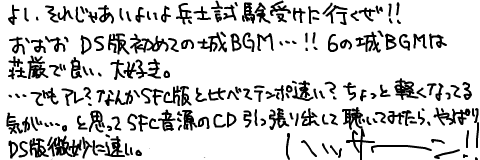 よし、それじゃあいよいよ兵士試験受けに行くぜ!!
おおお DS版初めての城BGM…!! 6の城BGMは
荘厳で良い、大好き。
…でもアレ?なんかSFC版と比べてテンポ速い?ちょっと軽くなってる
気が…。と思ってSFC音源のCD引っ張り出して聴いてみたら、やっぱり
DS版微妙に速い。